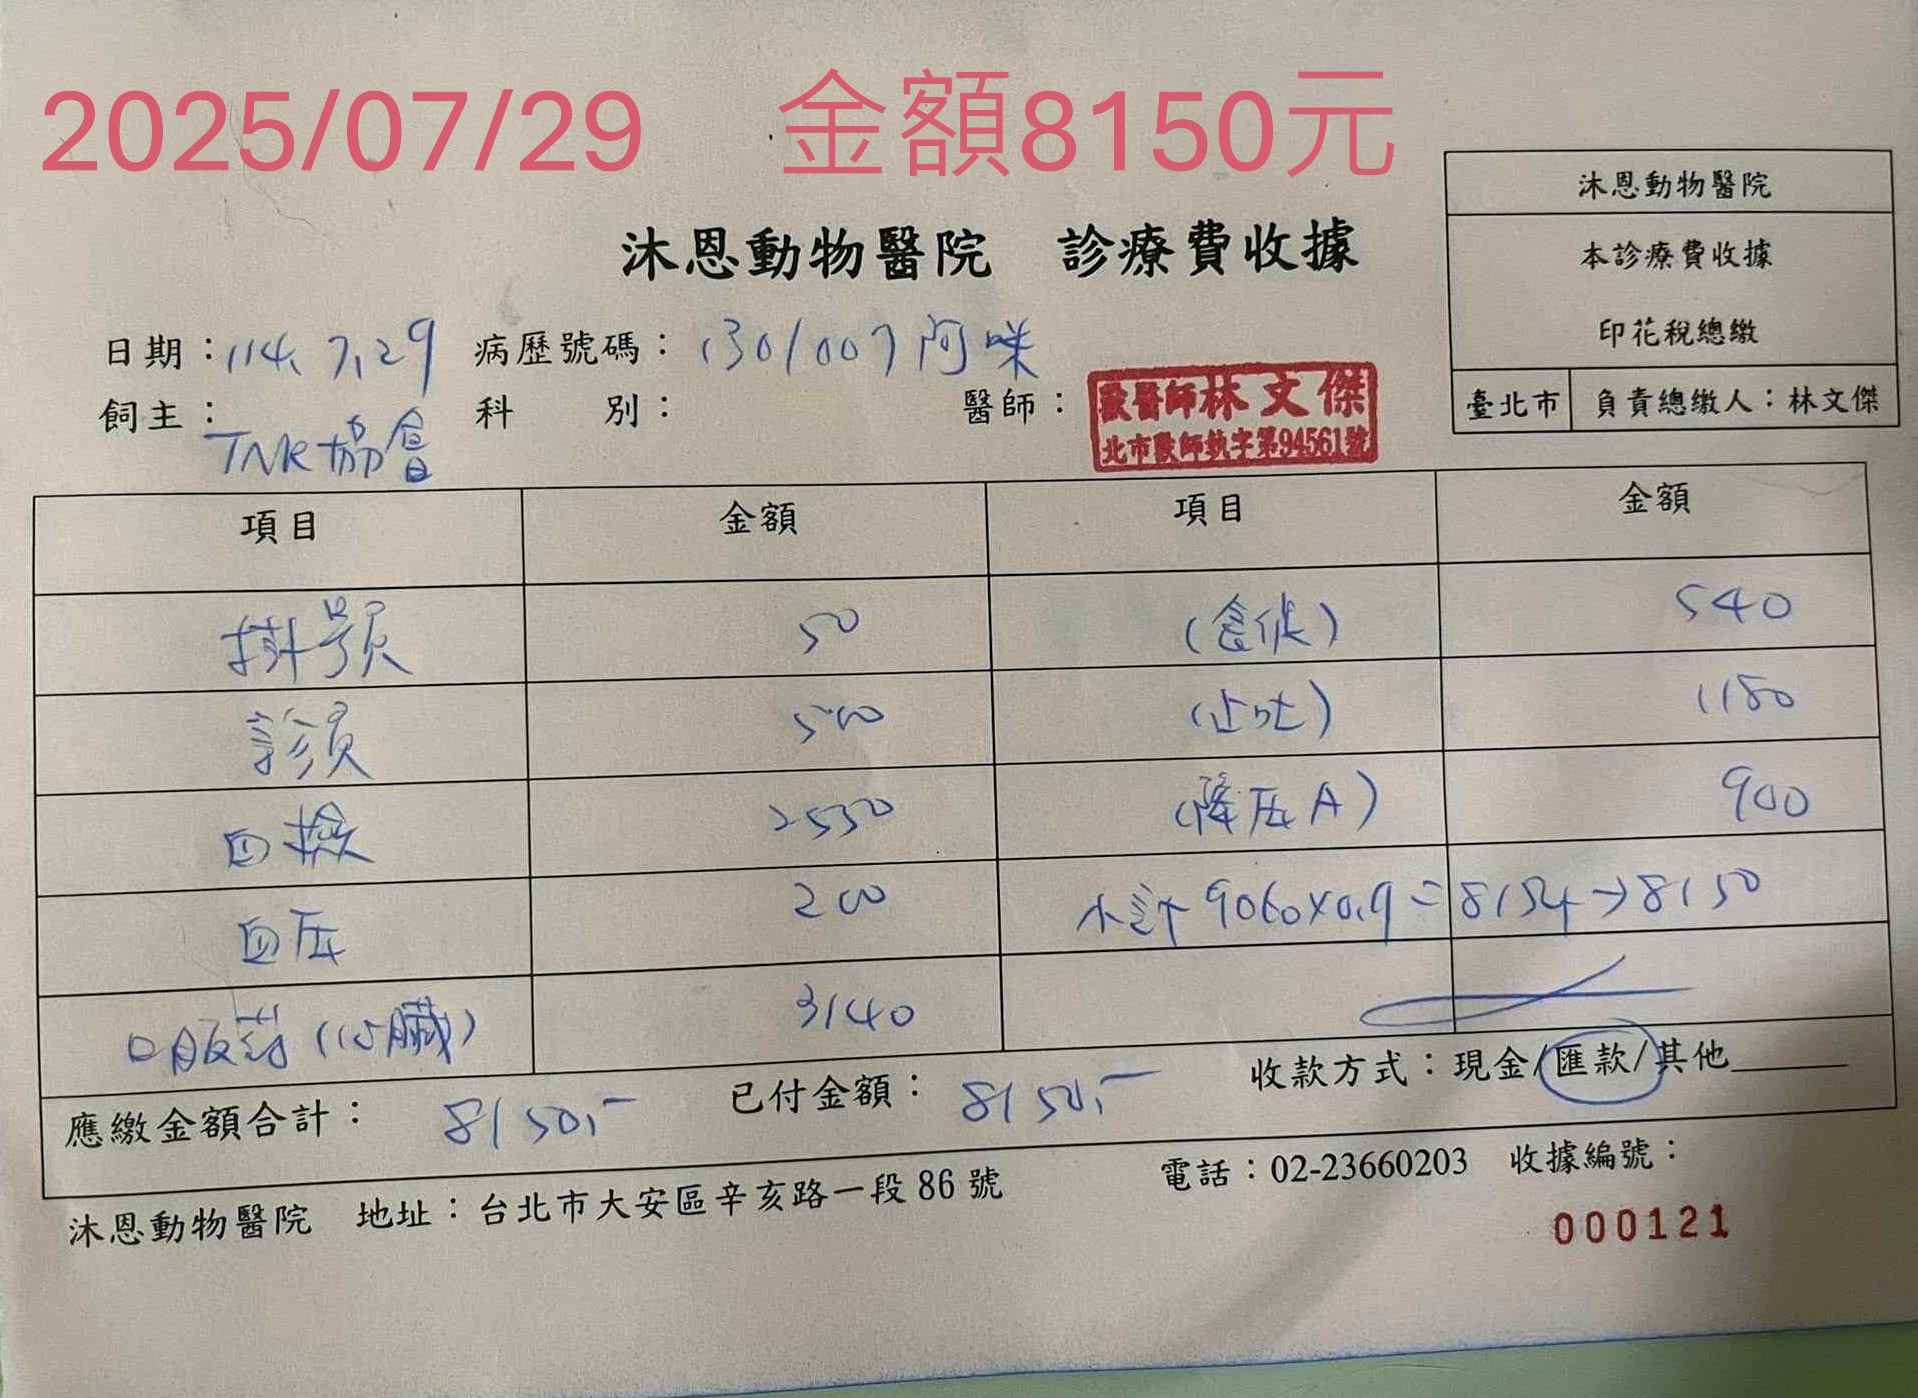 2025/07/29 金額8150元
沐恩動物醫院
本診療費收據
印花稅總繳
臺北市 負責總繳人：林文傑
沐恩動物醫院 診療費收據
日期：114.7.29 病歷號碼：1301007 阿咪
飼主：TNR協會 科 別： 醫師：
獸醫師林文傑
北市獸師執字第94561號
項目 金額 項目 金額
掛號 50 (食慾) 540
診費 500 (止吐) 1180
血檢 2530 (降压A) 900
血压 200 小計 9060×0.9=8154→8150
口服葯(心臟) 3140
應繳金額合計：8150.- 已付金額：8150.- 收款方式：現金/匯款/其他
沐恩動物醫院 地址：台北市大安區辛亥路一段86號 電話：02-23660203 收據編號：
000121